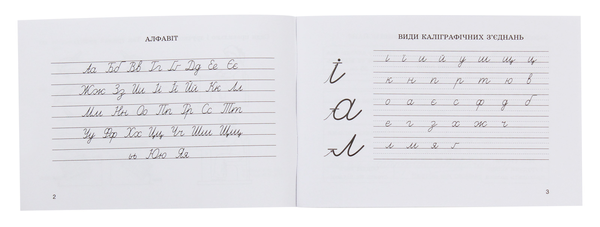 АЛФАВІТ
Аа Бб Вв Гг Ґґ Дд Ее Єє
Жж Зз Ии Іі Її Йй Кк Лл
Мм Нн Оо Пп Рр Сс Тт
Уу Фф Хх Цц Чч Шш Щщ
ь Юю Яя
2
ВИДИ КАЛІГРАФІЧНИХ З'ЄДНАНЬ
і
а
л
і ї и й у ш щ ц
к н п р т ю в
о а є с ф д б
е г з х ж ч
л м я ґ
3